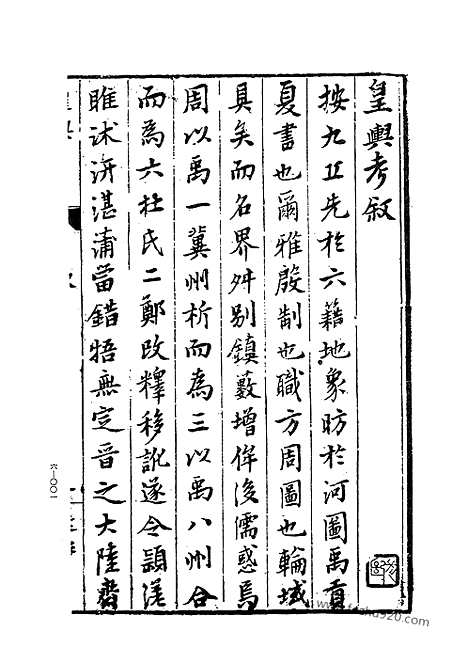 皇輿考叙
按九丘先於六籍地象昉於河圖禹貢
夏書也爾雅殷制也職方周圖也輪域
具矣而名界舛别鎮藪增侔後儒惑焉
周以禹一冀州析而為三以禹八州合
而為六杜氏二鄭改釋移訛遂令潁湛
睢沭洀湛蒲當錯牾無定晉之大陸齊
六-〇〇一